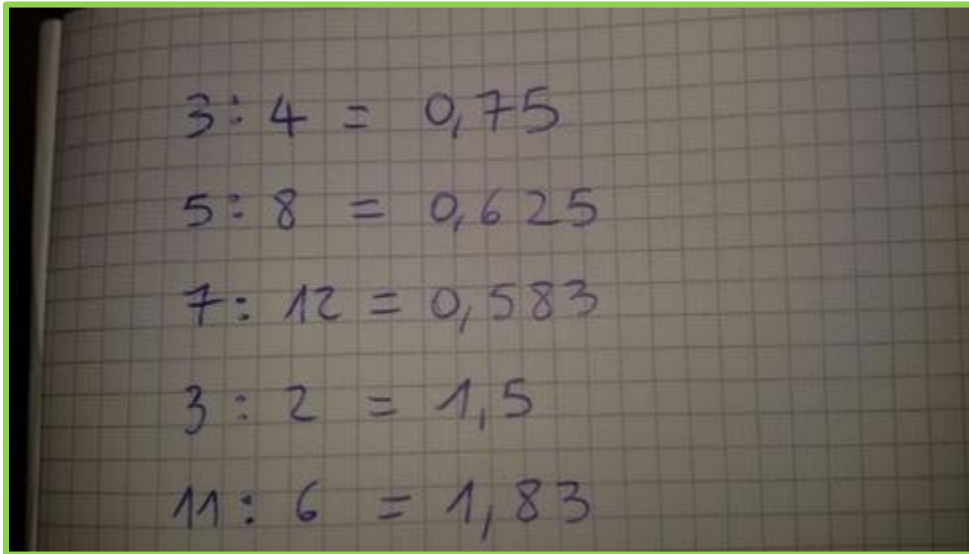 3 : 4 = 0,75
5 : 8 = 0,625
7 : 12 = 0,583
3 : 2 = 1,5
11 : 6 = 1,83